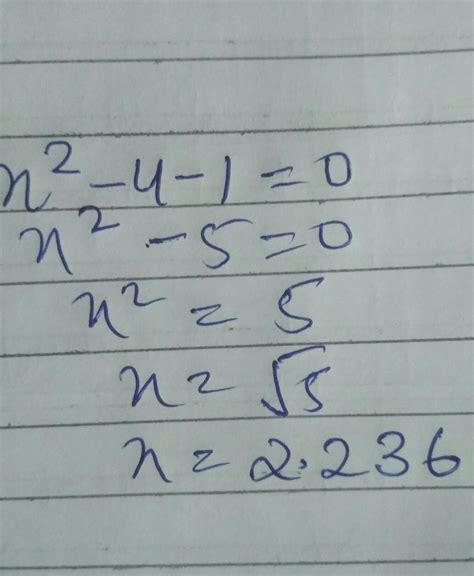 x² - 4 - 1 = 0
x² - 5 = 0
x² = 5
x = √5
x = 2.236